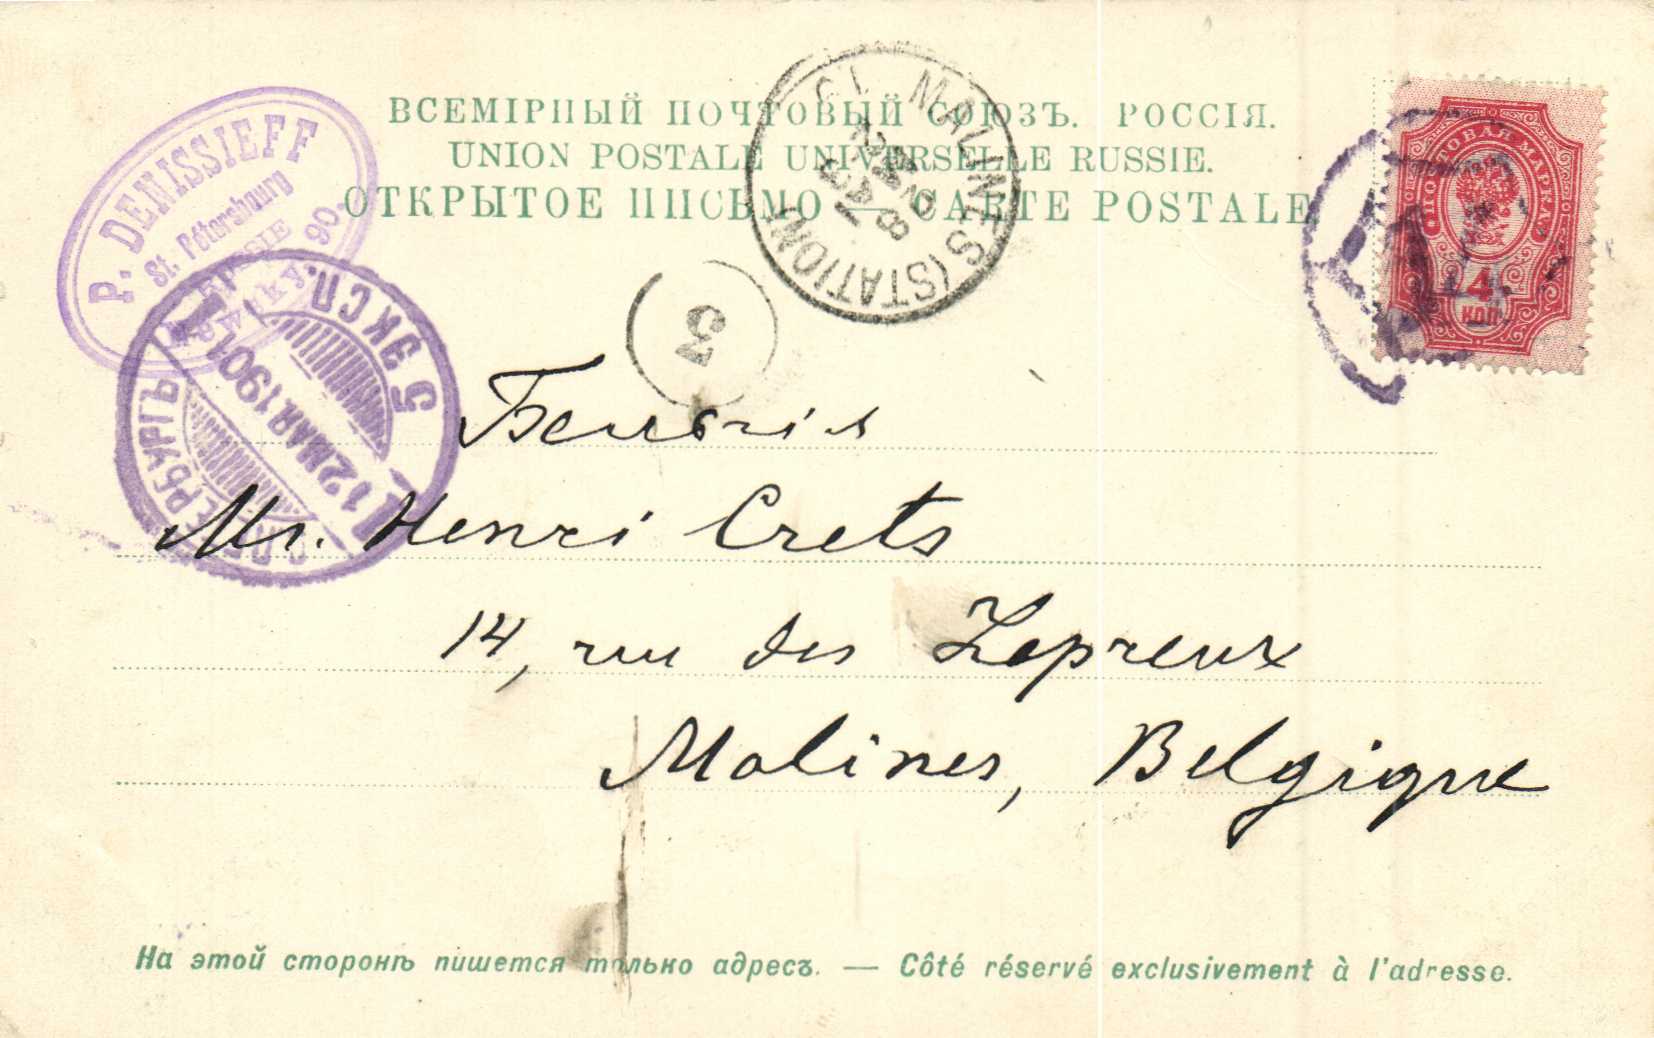 ВСЕМІРНЫЙ ПОЧТОВЫЙ СОЮЗЪ. РОССІЯ.
UNION POSTALE UNIVERSELLE RUSSIE.
ОТКРЫТОЕ ПИСЬМО — CARTE POSTALE
P. DENISSIEFF
St. Pétersbourg
RUSSIE
90.
MALINES (STATION)
8
ПОЧТОВАЯ МАРКА
4
КОП.
3
С.ПЕТЕРБУРГЪ
12 МАЯ 1901
5 ЭКСП.
Бельгія
Mr. Henri Crets
14, rue des Lepreux
Malines, Belgique
На этой сторонѣ пишется только адресъ. — Côté réservé exclusivement à l'adresse.